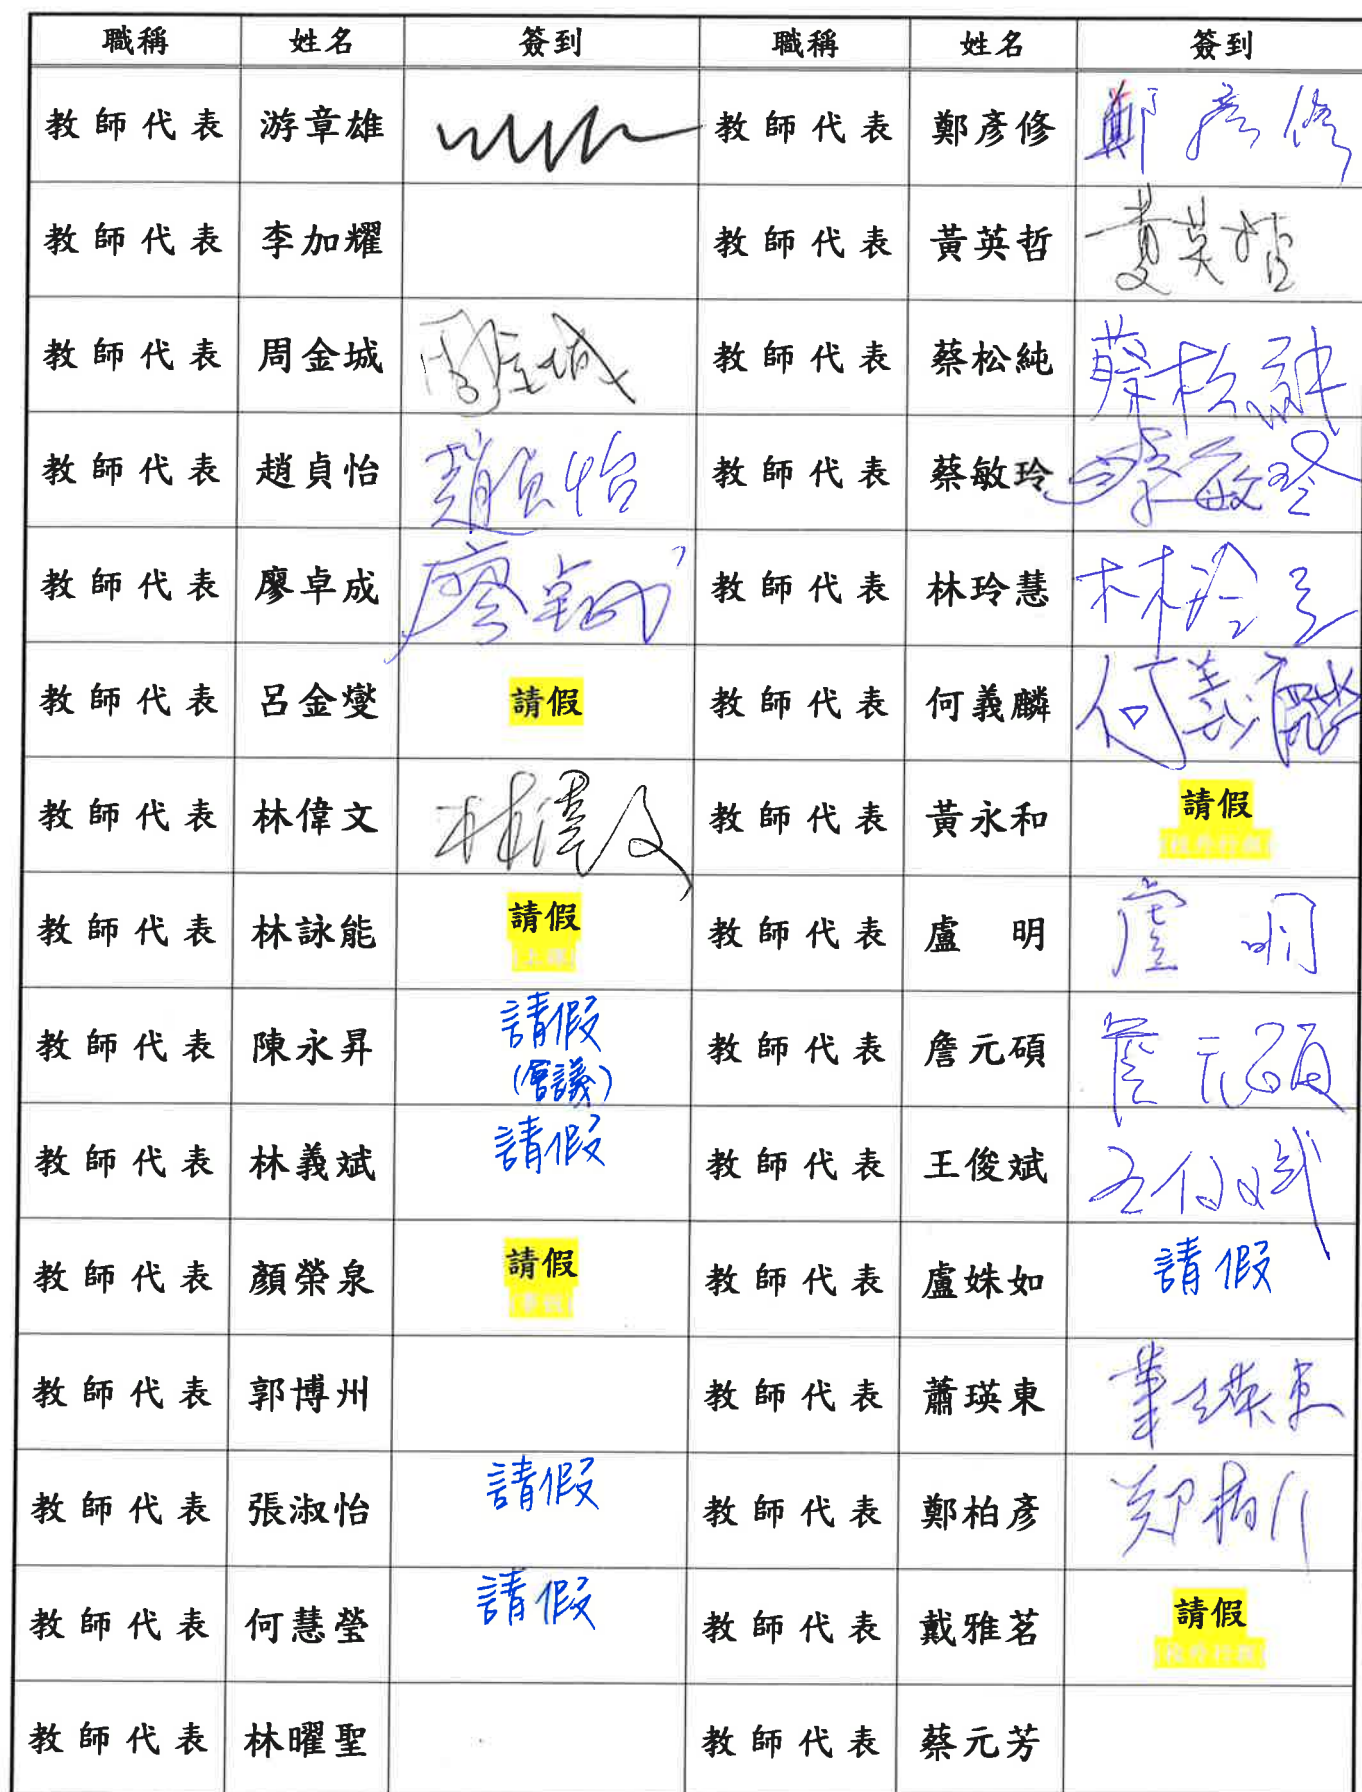 職稱 姓名 簽到 職稱 姓名 簽到
教師代表 游章雄 教師代表 鄭彥修 鄭彥修
教師代表 李加耀 教師代表 黃英哲 黃英哲
教師代表 周金城 周金城 教師代表 蔡松純 蔡松純
教師代表 趙貞怡 趙貞怡 教師代表 蔡敏玲 蔡敏玲
教師代表 廖卓成 廖卓成 教師代表 林玲慧 林玲慧
教師代表 呂金燮 請假 教師代表 何義麟 何義麟
教師代表 林偉文 林偉文 教師代表 黃永和 請假
教師代表 林詠能 請假 教師代表 盧 明 盧 明
教師代表 陳永昇 請假 (會議) 教師代表 詹元碩 詹元碩
教師代表 林義斌 請假 教師代表 王俊斌 王俊斌
教師代表 顏榮泉 請假 教師代表 盧姝如 請假
教師代表 郭博州 教師代表 蕭瑛東 蕭瑛東
教師代表 張淑怡 請假 教師代表 鄭柏彥 鄭柏彥
教師代表 何慧瑩 請假 教師代表 戴雅茗 請假
教師代表 林曜聖 教師代表 蔡元芳